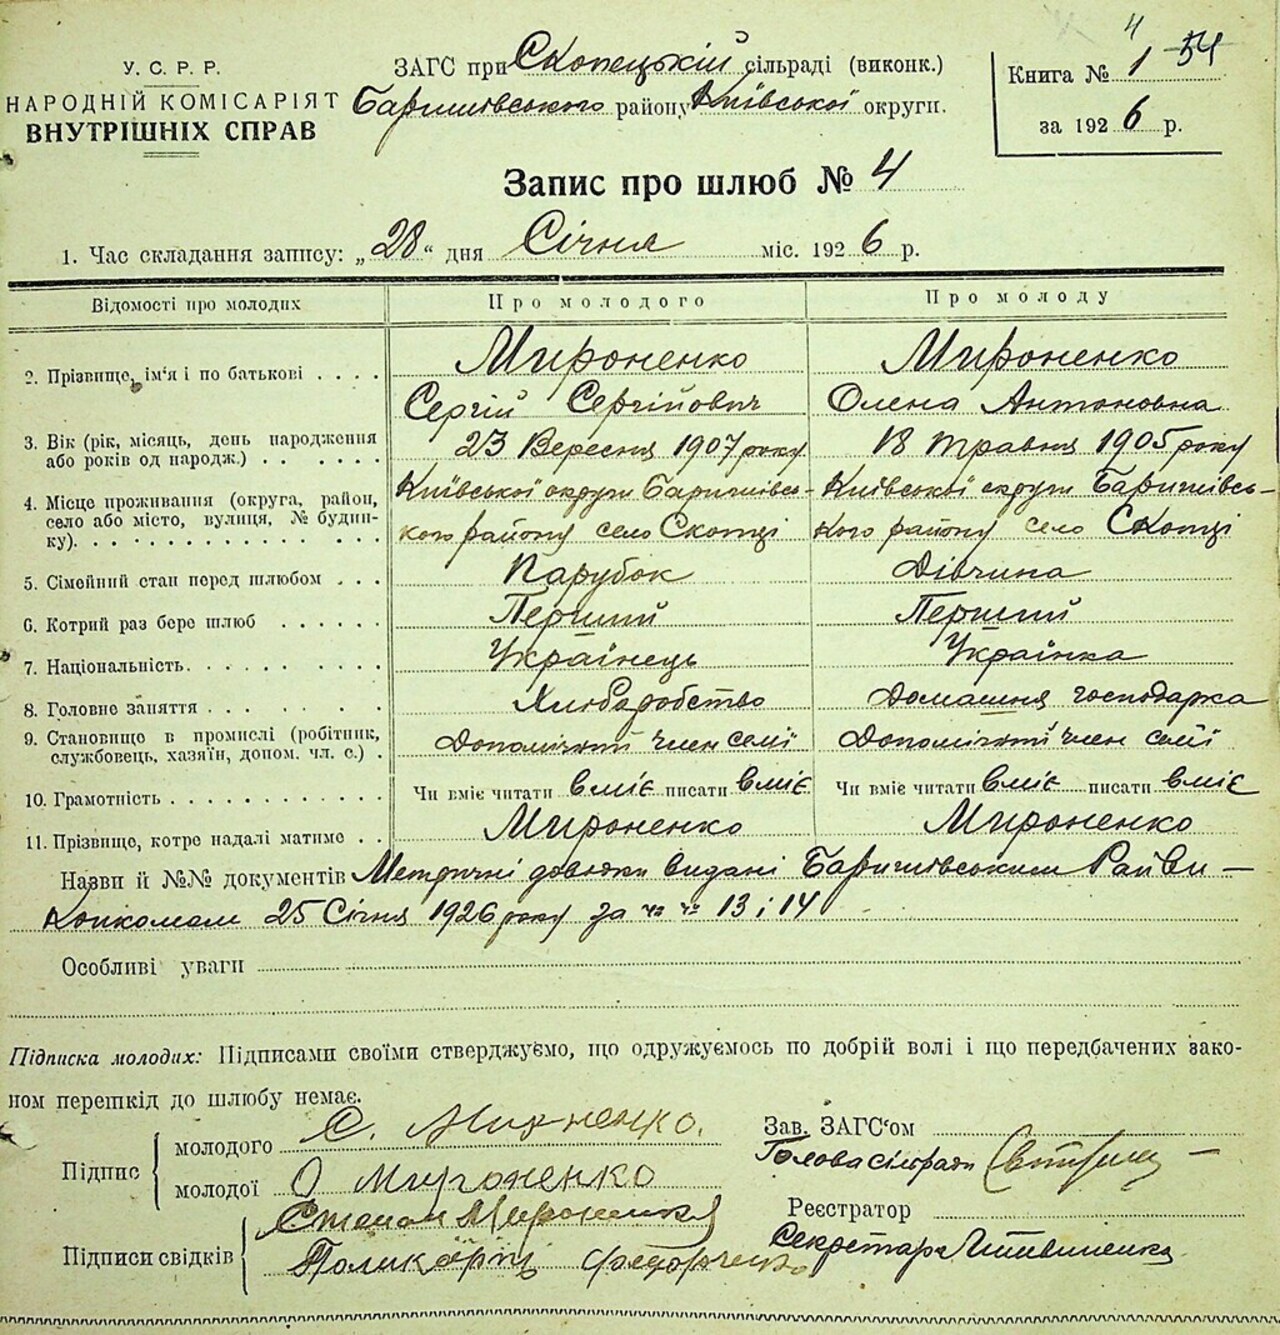 У. С. Р. Р.
НАРОДНІЙ КОМІСАРІЯТ
ВНУТРІШНІХ СПРАВ
ЗАГС при Скопецькій сільраді (виконк.)
Баришівського району Київської округи.
4
Книга № 1 54
за 1926 р.
Запис про шлюб № 4
1. Час складання запису: „28“ дня Січня міс. 1926 р.
Відомості про молодих Про молодого Про молоду
2. Прізвище, ім‘я і по батькові . . . . Мироненко Мироненко
Сергій Сергійович Олена Антоновна
3. Вік (рік, місяць, день народження 23 Вересня 1907 року 18 травня 1905 року
або років од народж.) . . . . . .
4. Місце проживання (округа, район, Київської округи Баришівсь- Київської округи Баришівсь-
село або місто, вулиця, № будин- кого району село Скопці кого району село Скопці
ку). . . . . . . . . . . . . . .
5. Сімейний стан перед шлюбом . . . Парубок Дівчина
6. Котрий раз бере шлюб . . . . . . Перший Перший
7. Національність. . . . . . . . . . Українець Українка
8. Головне заняття . . . . . . . . Хліборобство Домашня господарка
9. Становище в промислі (робітник, Допоміжний член семї Допоміжний член семї
службовець, хазяїн, допом. чл. с.) .
10. Грамотність . . . . . . . . . . . Чи вміє читати вміє писати вміє Чи вміє читати вміє писати вміє
11. Прізвище, котре надалі матиме . . Мироненко Мироненко
Назви й №№ документів Метричні довідки видані Баришівським Райви-
конкомам 25 Січня 1926 року за чч 13 і 14
Особливі уваги
Підписка молодих: Підписами своїми стверджуємо, що одружуємось по добрій волі і що передбачених зако-
ном перешкід до шлюбу немає.
Підпис
молодого С. Мироненко.
молодої О Мироненко
Підписи свідків
Степан Мироненко
Полікарп Федорченко
Зав. ЗАГС‘ом
Голова сільради
Реєстратор
Секретарь Литвиненко